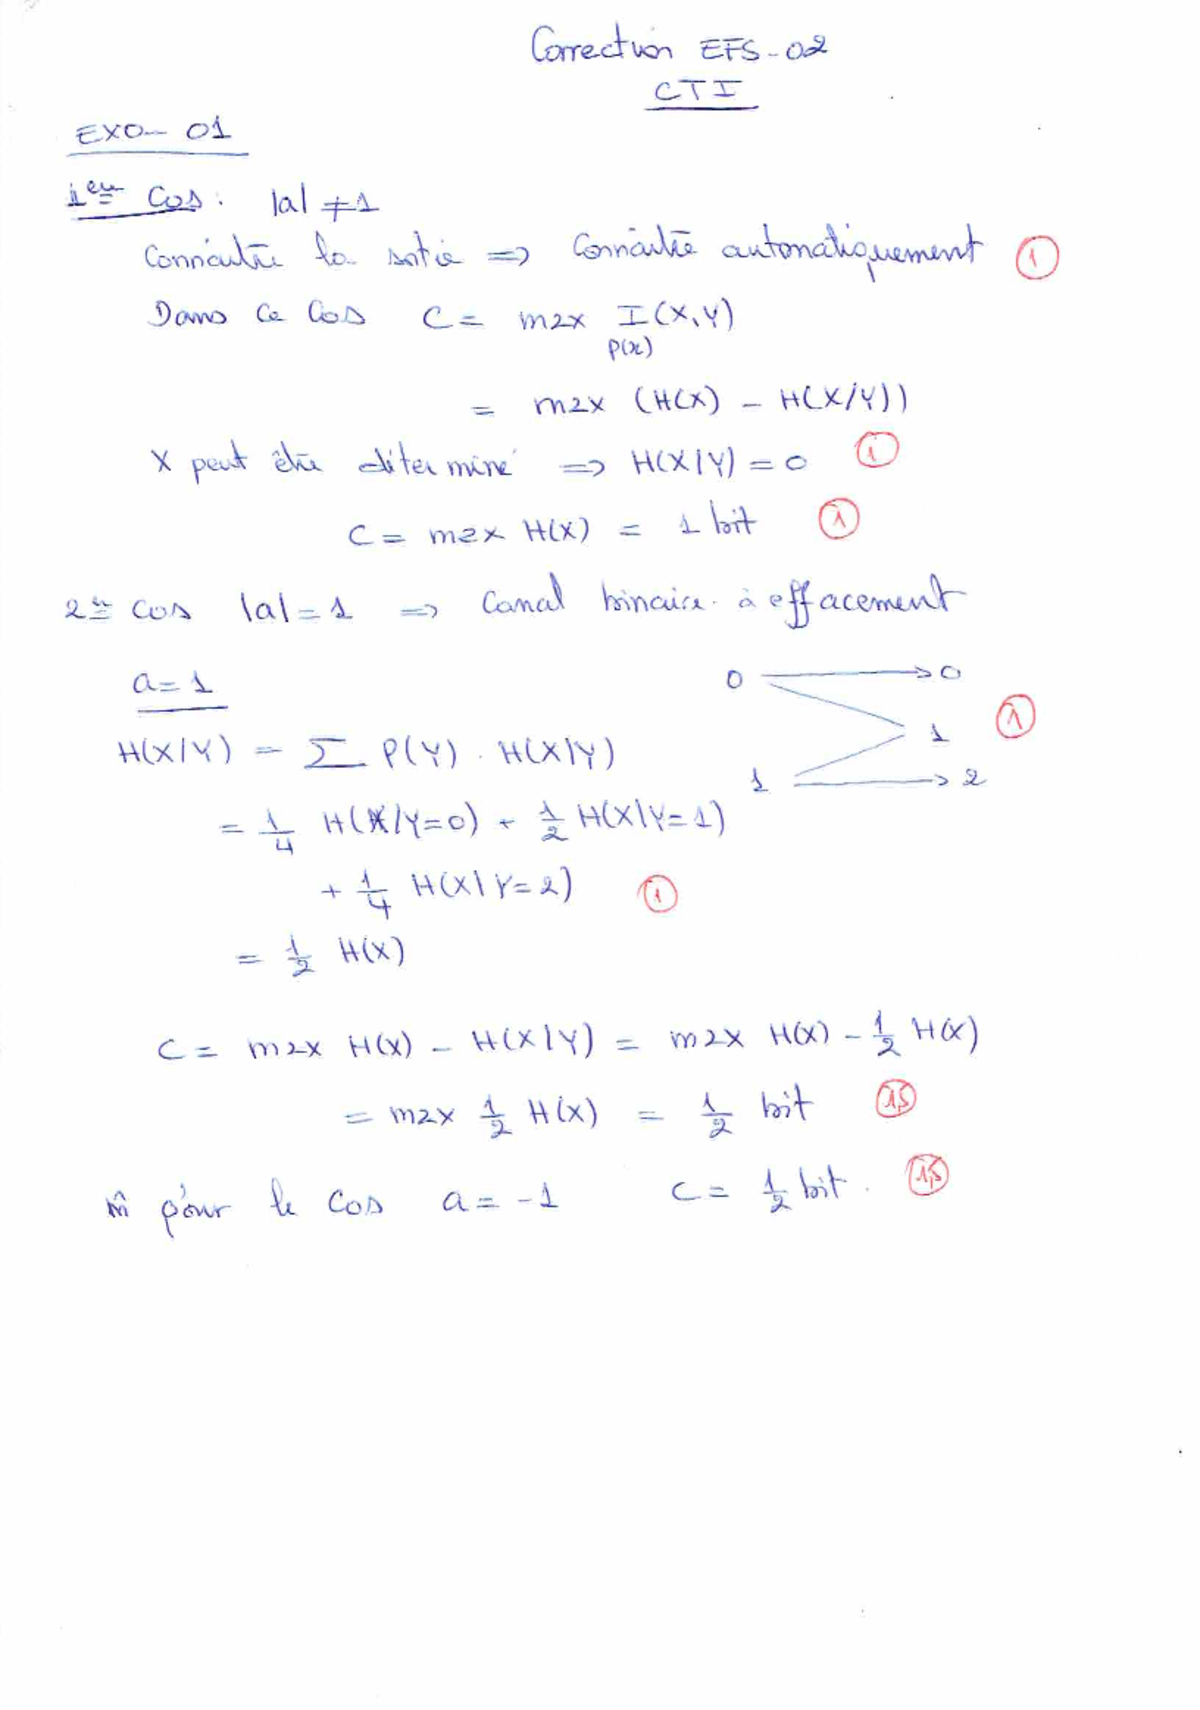 Correction EFS-02
CTI
EXO-01
1er Cas: |a| ≠ 1
Connaître la sortie => Connaître automatiquement 1
Dans ce Cas C = max I(X,Y)
P(x)
= max (H(X) - H(X/Y))
X peut être déterminé => H(X|Y) = 0 1
C = max H(X) = 1 bit 1
2e cas |a| = 1 => Canal binaire à effacement
a = 1
0 → 0
1 → 2
1
1
H(X/Y) = ∑ P(Y) . H(X|Y)
= 1/4 H(X/Y=0) + 1/2 H(X|Y=1)
+ 1/4 H(X|Y=2) 1
= 1/2 H(X)
C = max H(X) - H(X|Y) = max H(X) - 1/2 H(X)
= max 1/2 H(X) = 1/2 bit 1,5
m̂ pour le Cas a = -1 C = 1/2 bit. 1,5